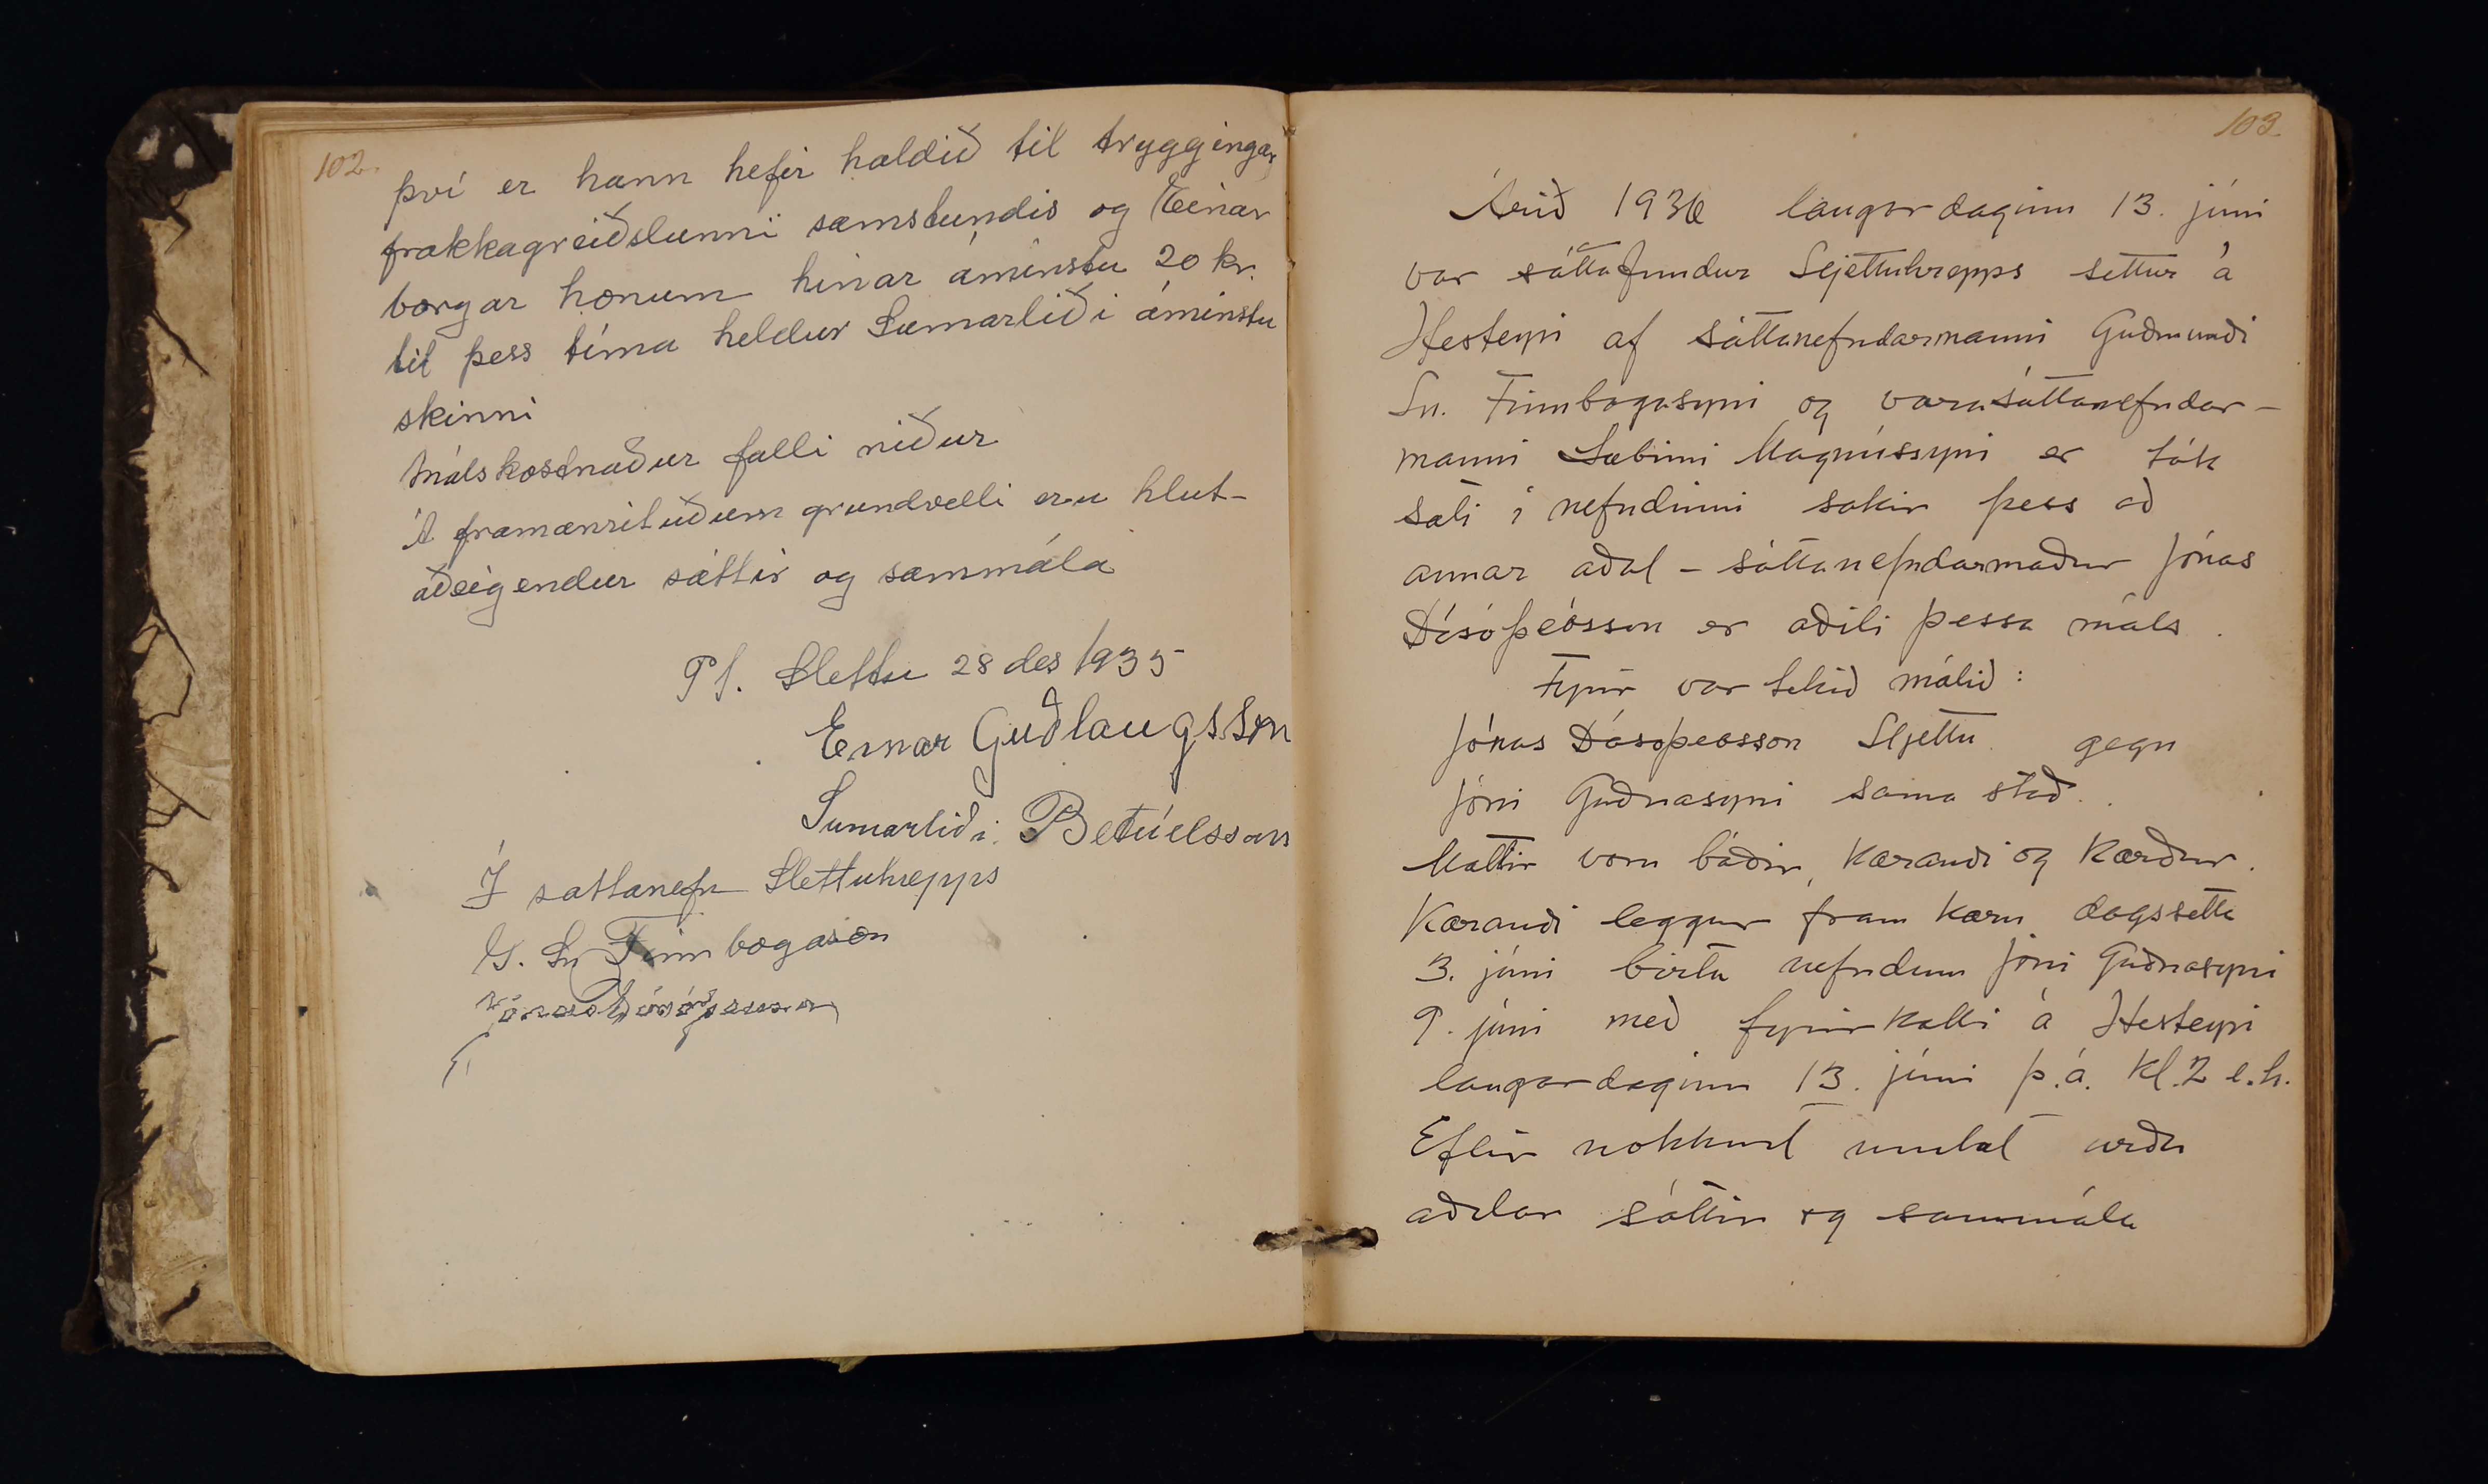 102.
því er hann hefir haldið til tryggingar
frakkagreiðslunni samstundis og Einar
borgar honum hinar áminstu 20 kr.
til þess tíma heldur Sumarliði áminstu
skinni
Málskostnaður falli niður
Á framanrituðum grundvelli eru hlut-
aðeigendur sáttir og sammála
Pt. Slettu 28 des 1935
Einar Guðlaugsson
Sumarliði Betúelsson
Í sattanefn Slettuhrepps
G. Sn Finnbogason
Jónas Dósóþeusson
103
Árið 1936 laugardaginn 13. júni
var sáttafundur Sljettuhrepps settur á
Hesteyri af sáttanefndarmanni Guðmundi
Sn. Finnbogasyni og varasáttanefndar-
manni Sæbirni Magnússyni er tók
sæti í nefndinni sakir þess að
annar aðal-sáttanefndarmaður Jónas
Dósóþeósson er aðili þessa máls.
Fyrir var tekið málið:
Jónas Dósoþeosson Sljettu gegn
Jóni Guðnasyni sama stað.
Mættir voru báðir, kærandi og kærður.
Kærandi leggur fram kæru dagsetta
3. júni birta nefndum Jóni Guðnasyni
9. júni með fyrirkalli á Hesteyri
laugardaginn 13. júni þ.á. kl. 2 e.h.
Eftir nokkurt umtal urðu
aðilar sáttir og sammála